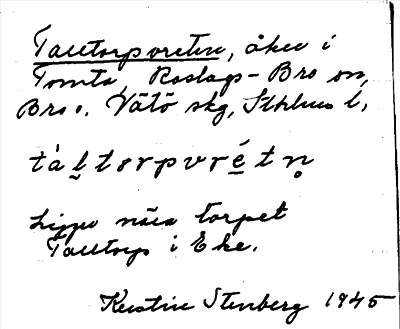 Talltorpvreten, åker i
Tomta, Roslags-Bro sn,
Bro o. Vätö skg, Sthlms l,
tàl̬torpvrét n̥
Ligger nära torpet
Talltorp i Eke.
Kerstin Stenberg 1945